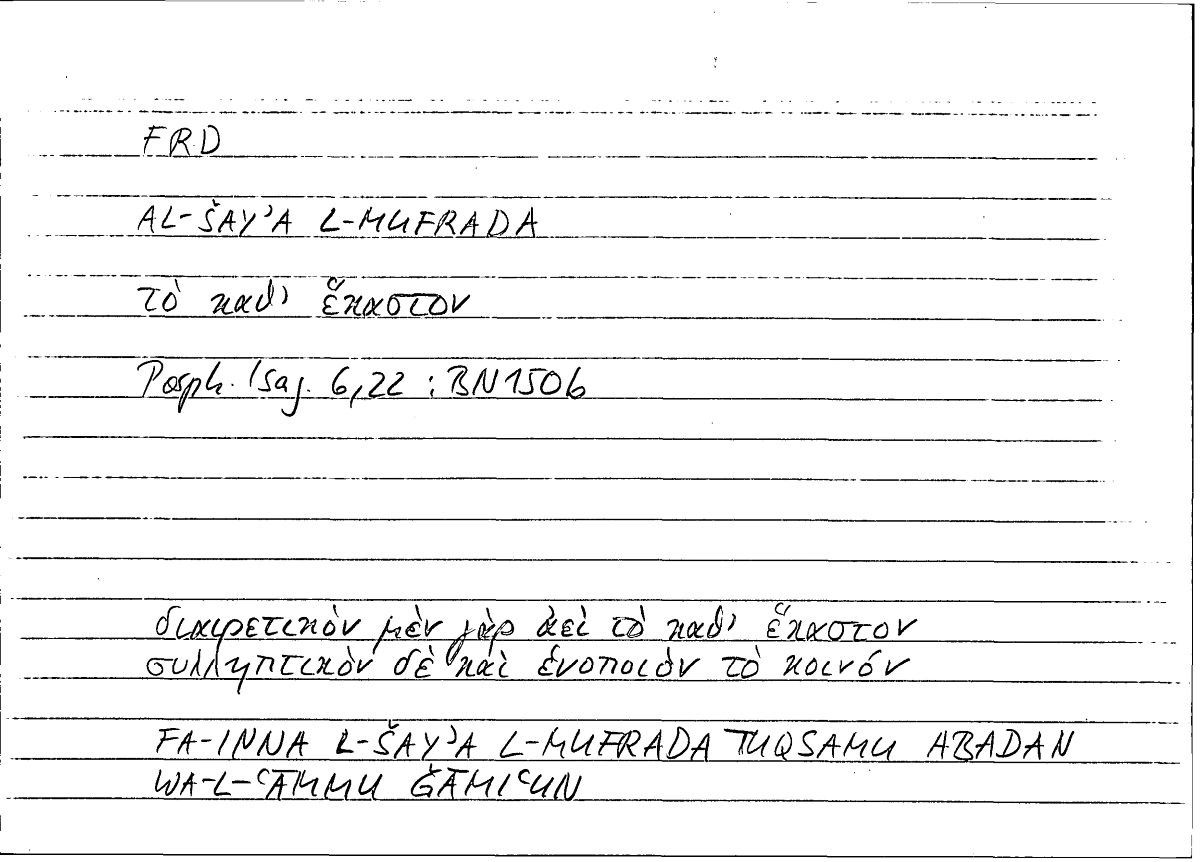 FRD
AL-ŠAY'A L-MUFRADA
τὸ καθ' ἕκαστον
Porph. Isag. 6,22 : BN150b
διαιρετικὸν μὲν γὰρ ἀεὶ τὸ καθ' ἕκαστον
συλληπτικὸν δὲ καὶ ἑνοποιὸν τὸ κοινόν
FA-INNA L-ŠAY'A L-MUFRADA TUQSAMU ABADAN
WA-L-ʿĀMMU ǦĀMIʿUN